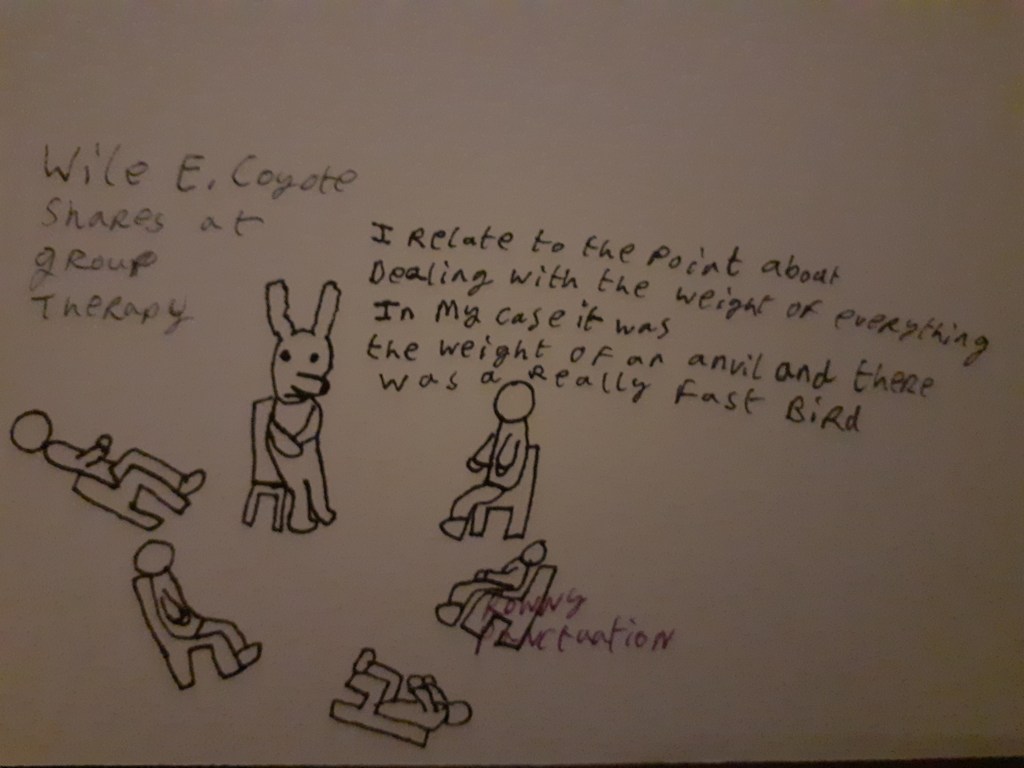 Wile E. Coyote
Shares at
group
Therapy
I Relate to the point about
Dealing with the weight of everything
In My case it was
the weight of an anvil and there
was a Really Fast BiRd
Punctuation